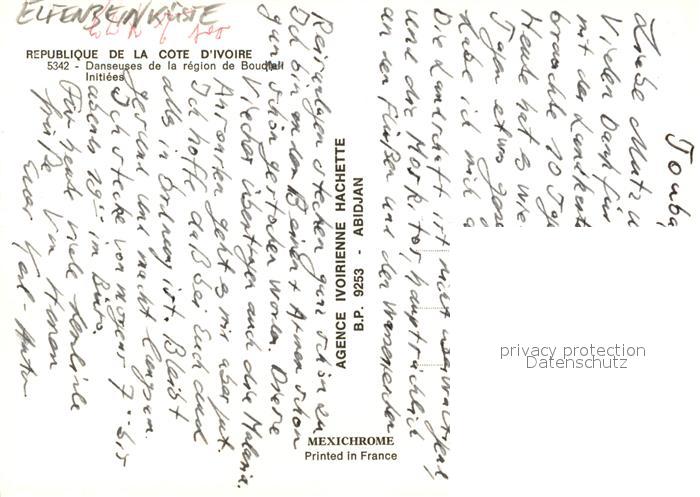 ELFENBEINKÜSTE
REPUBLIQUE DE LA COTE D'IVOIRE
5342 - Danseuses de la région de Boudiali
Initiées
AGENCE IVOIRIENNE HACHETTE
B.P. 9253 - ABIDJAN
MEXICHROME
Printed in France
privacy protection
Datenschutz
Touba
Liebe
Vielen Dank für
mit der Landkarte
brauchte 10 Tage
Heute hat es wie
Tagen etwas
habe ich mich
Die Landschaft ist nicht
und die Moskitos, hauptsächlich
an den Füßen und den
stechen ganz schön zu
Ich bin an den Beinen + Armen schon
ganz schön gestochen worden. Diese
Viecher übertragen auch die Malaria.
Ansonsten geht es mir aber gut.
Ich hoffe daß bei Euch auch
alles in Ordnung ist. Bleibt
gesund und macht
Ich stecke von morgens 7 bis
abends 18 im Büro.
Für heute viele herzliche
Grüße von
Euer Karl-